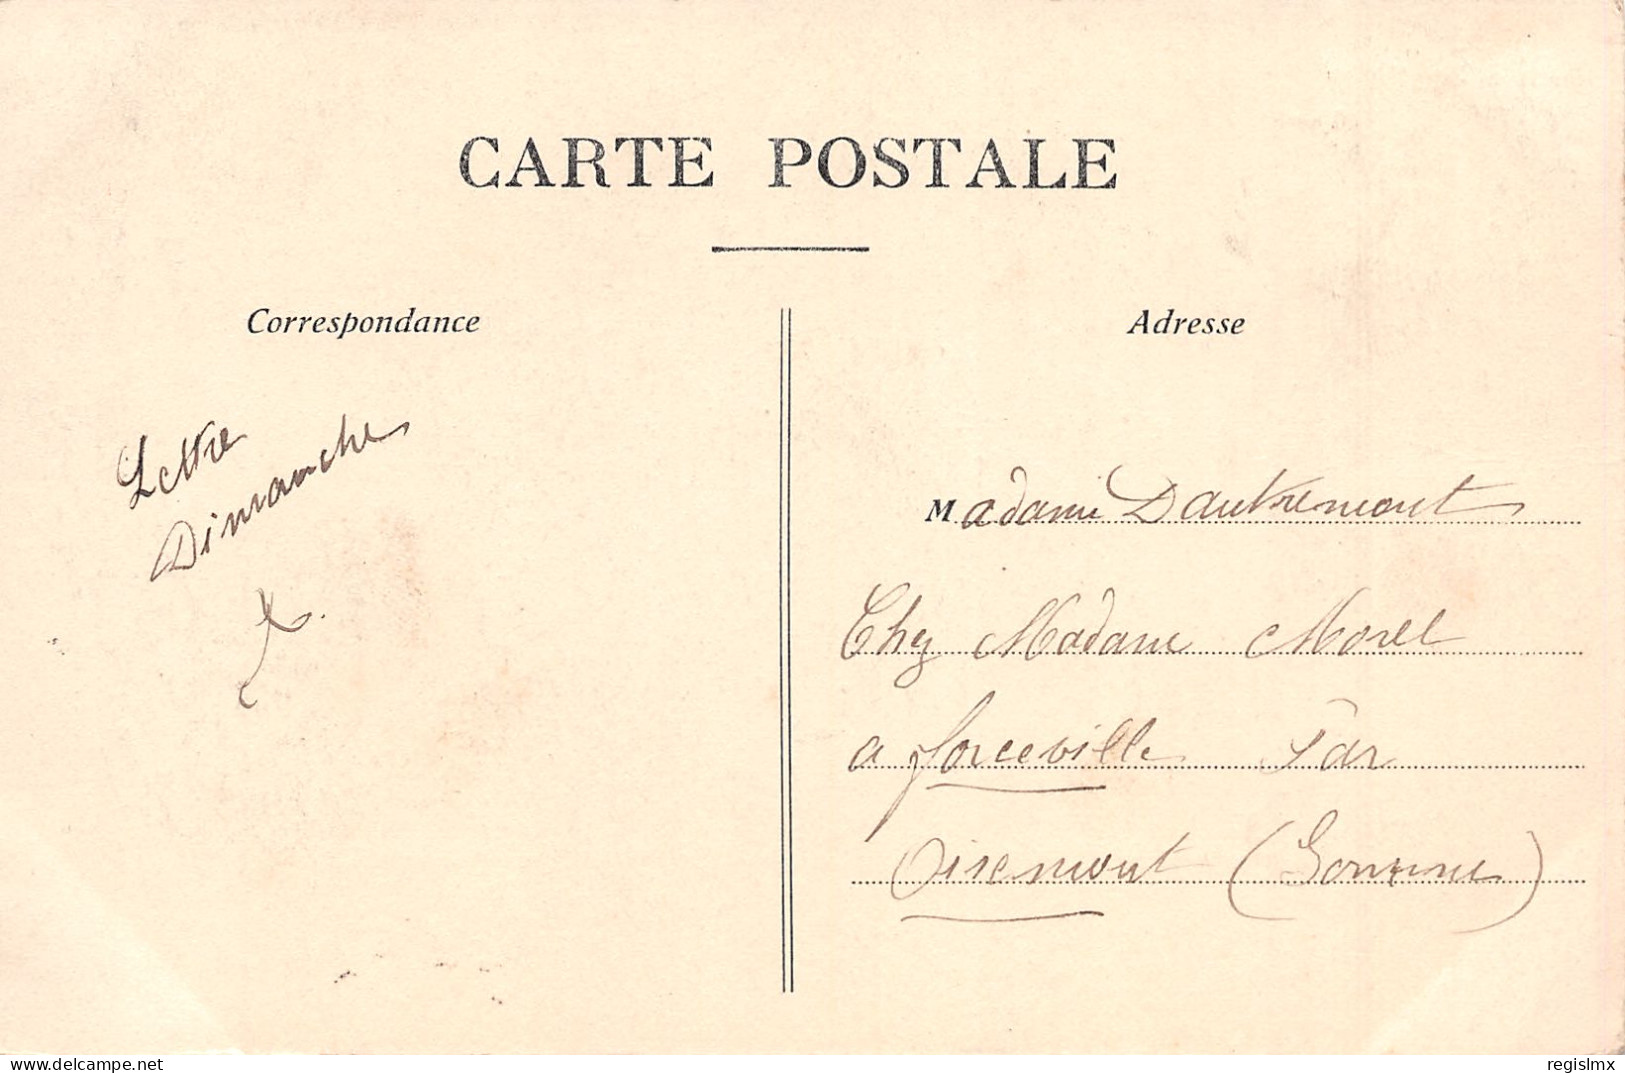 CARTE POSTALE
Correspondance
Adresse
Lettre
Dimanche
Madame Dautremont
Chez Madame Morel
a forceville Par
Oisemont (Somme)
www.delcampe.net
regislmx